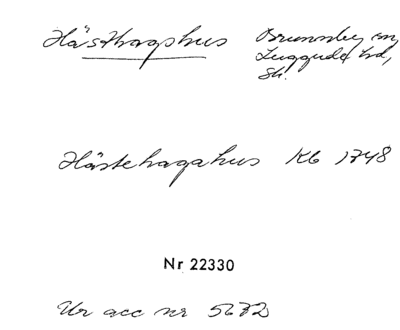 Hästhagshus Brunnby sn,
Luggude hd,
Sk.
Hästehagahus Kb 1748
Nr 22330
Ur acc nr 5672